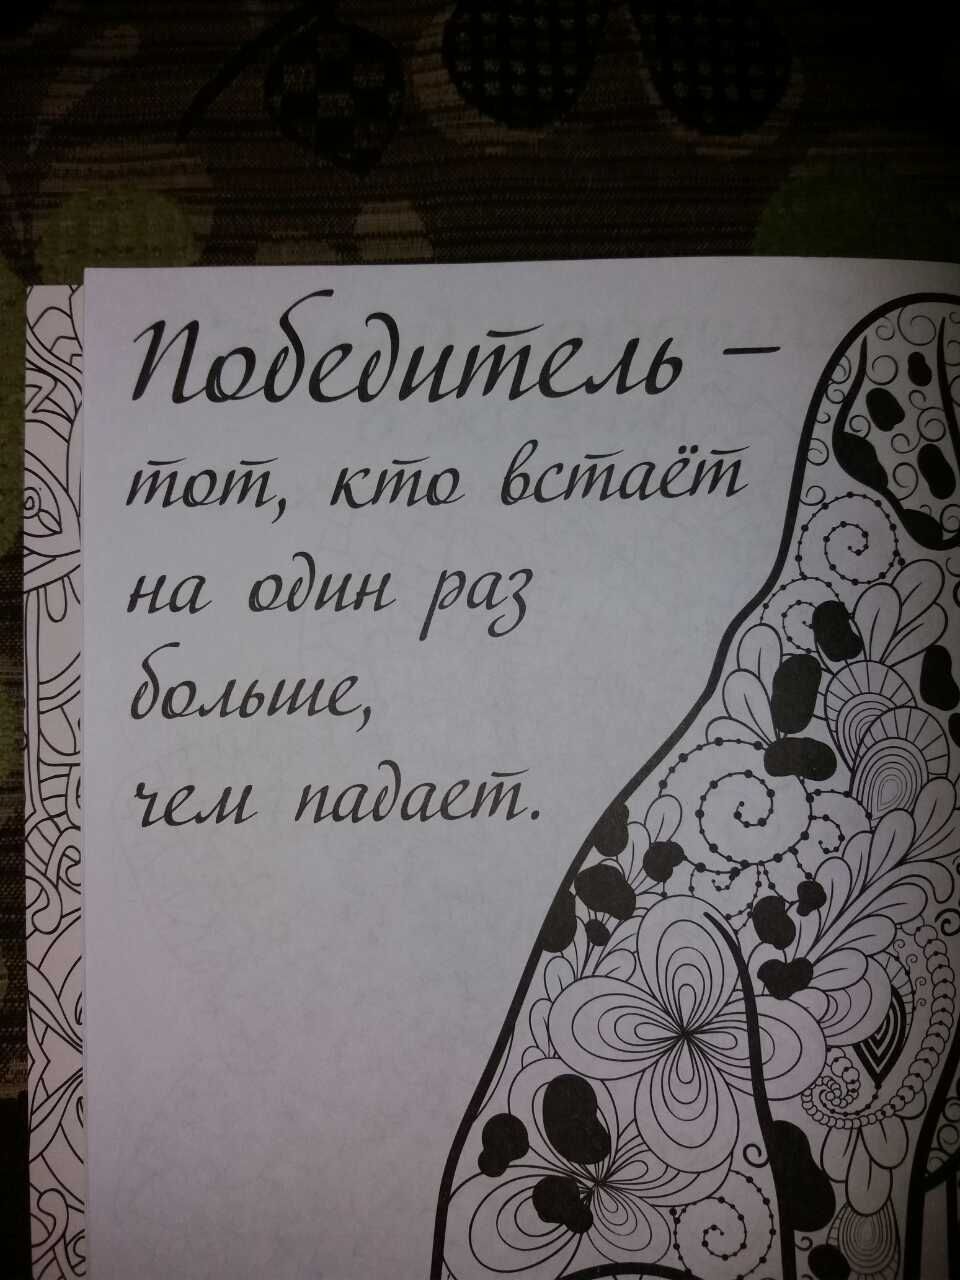 Победитель –
тот, кто встаёт
на один раз
больше,
чем падает.